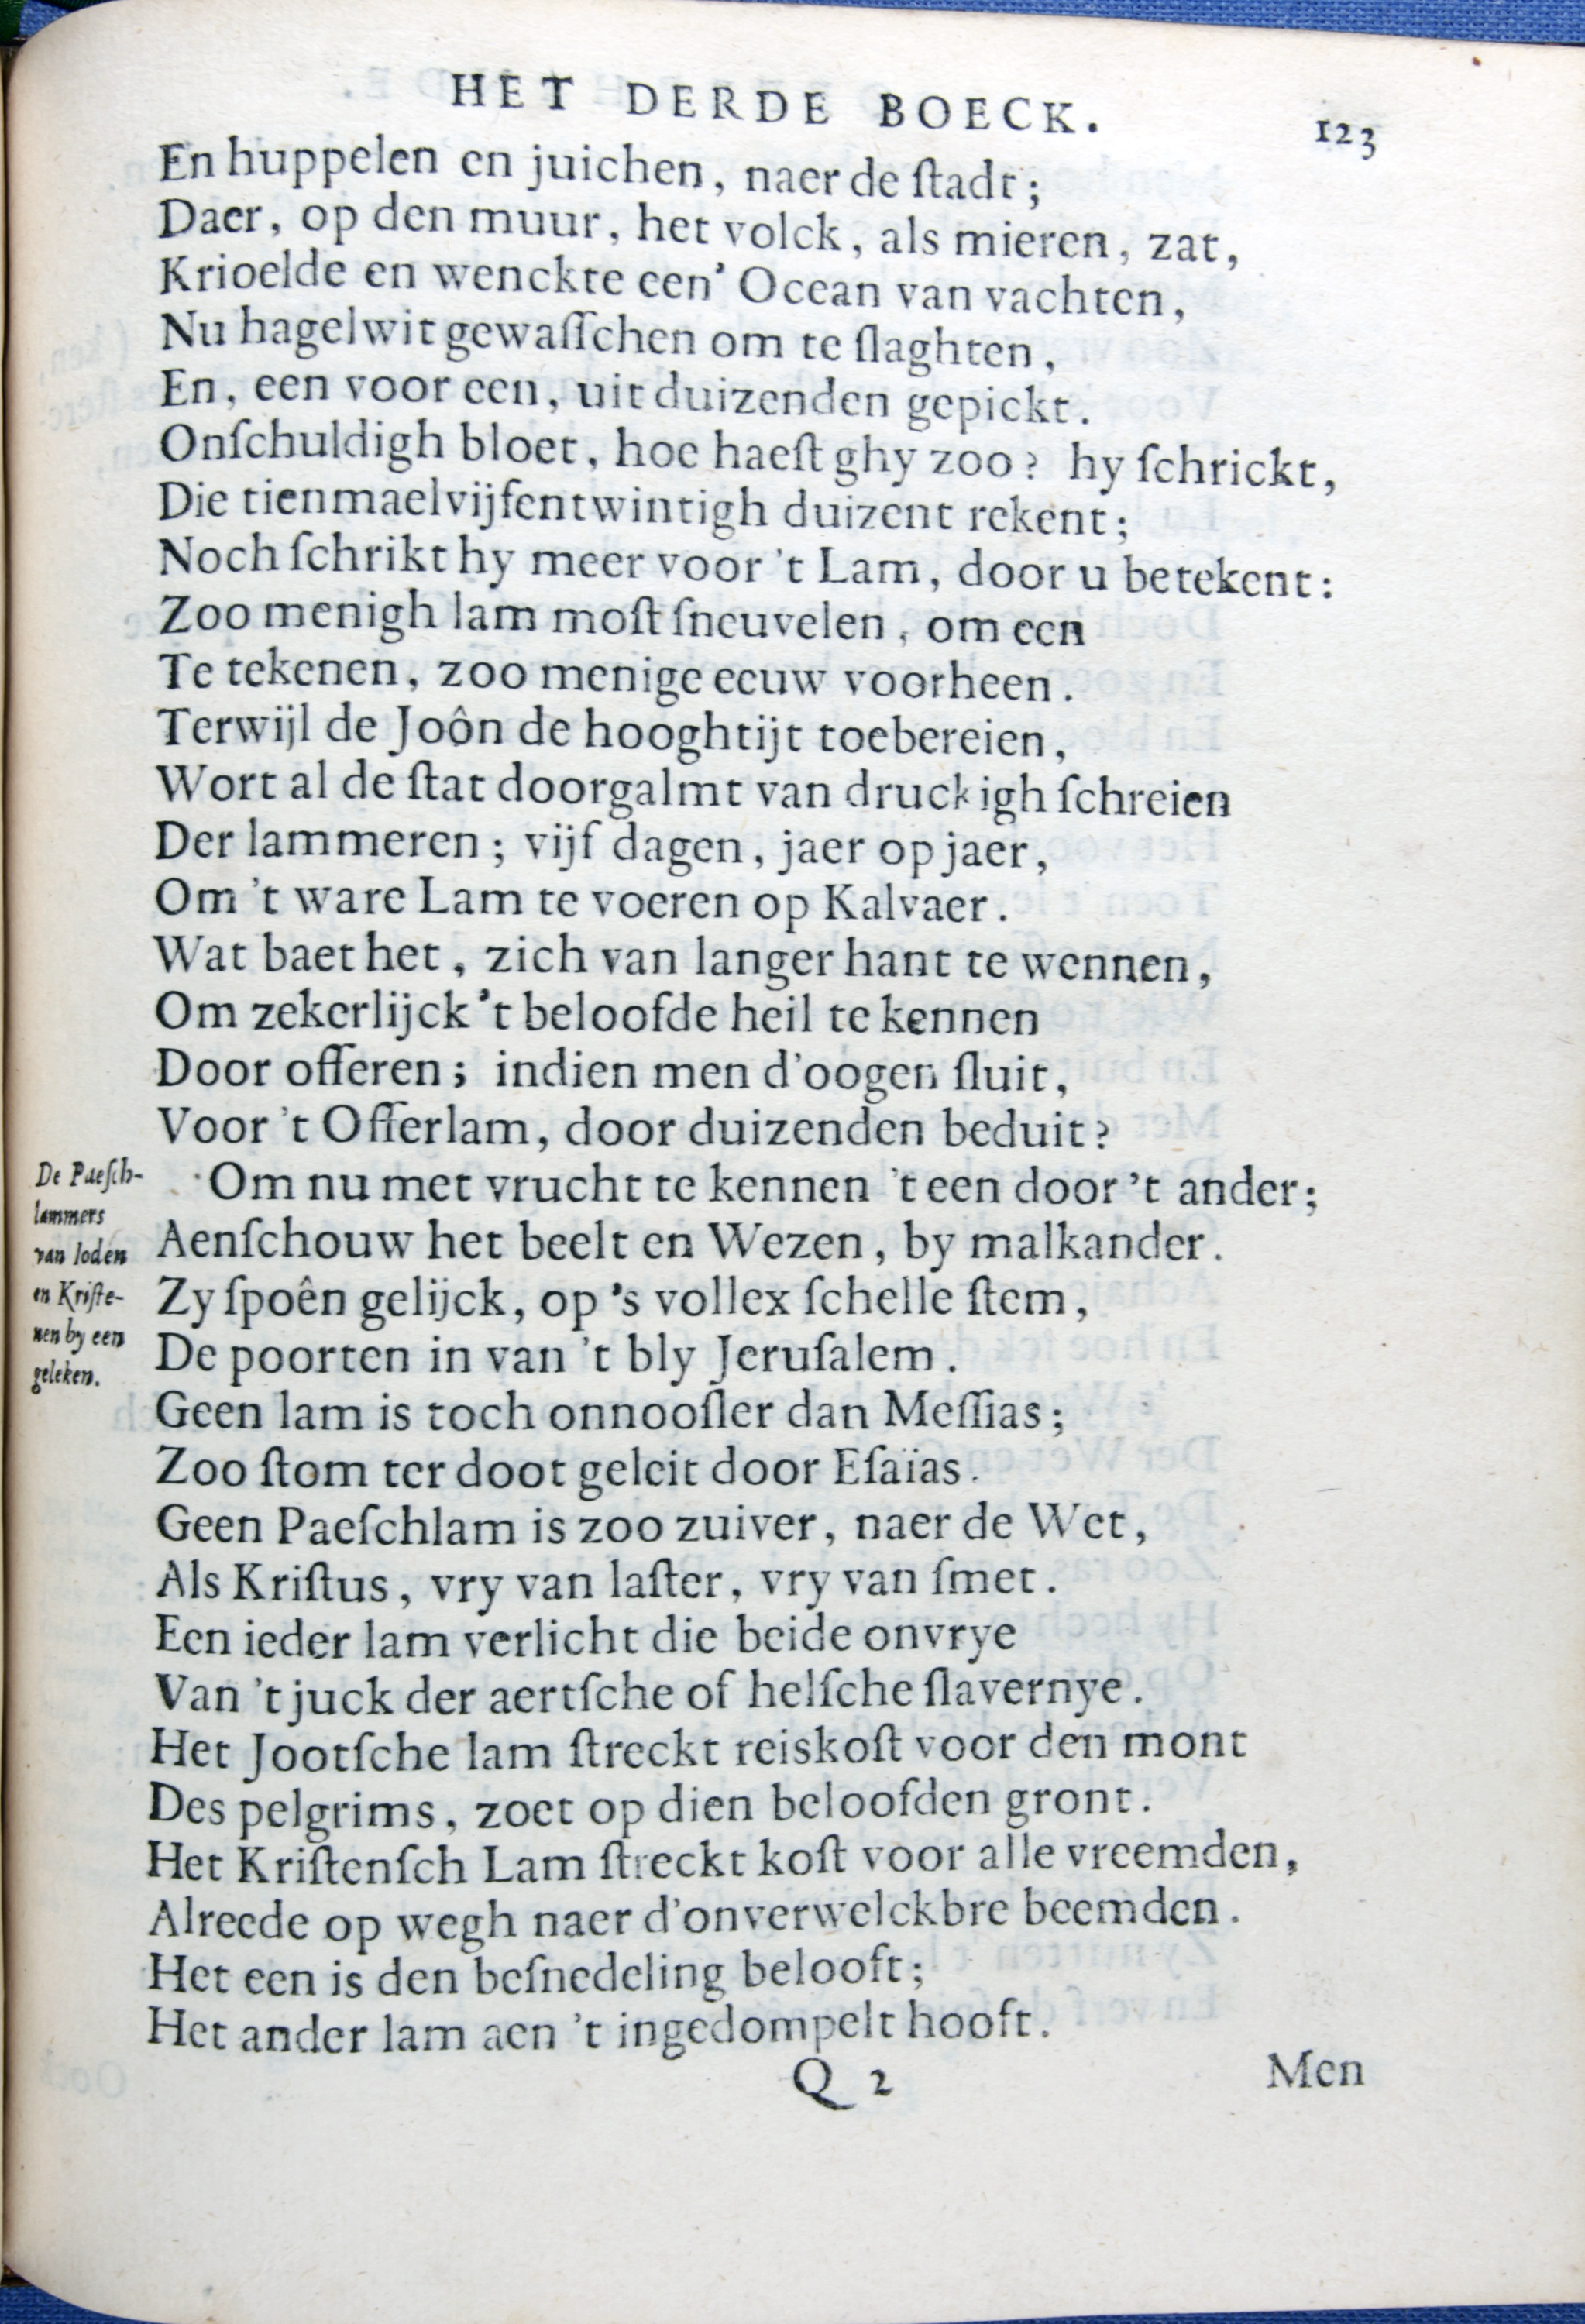 HET DERDE BOECK.
123
En huppelen en juichen, naer de ſtadt;
Daer, op den muur, het volck, als mieren, zat,
Krioelde en wenckte een' Ocean van vachten,
Nu hagelwit gewaſſchen om te ſlaghten,
En, een voor een, uit duizenden gepickt.
Onſchuldigh bloet, hoe haeſt ghy zoo? hy ſchrickt,
Die tienmaelvijfentwintigh duizent rekent;
Noch ſchrikt hy meer voor 't Lam, door u betekent:
Zoo menigh lam moſt ſneuvelen, om een
Te tekenen, zoo menige eeuw voorheen.
Terwijl de Joôn de hooghtijt toebereien,
Wort al de ſtat doorgalmt van druckigh ſchreien
Der lammeren; vijf dagen, jaer op jaer,
Om 't ware Lam te voeren op Kalvaer.
Wat baet het, zich van langer hant te wennen,
Om zekerlijck 't beloofde heil te kennen
Door offeren; indien men d'oogen ſluit,
Voor 't Offerlam, door duizenden beduit?
De Paeſch-
lammers
van Ioden
en Kriſte-
nen by een
geleken.
Om nu met vrucht te kennen 't een door 't ander;
Aenſchouw het beelt en Wezen, by malkander.
Zy ſpoên gelijck, op 's vollex ſchelle ſtem,
De poorten in van 't bly Jeruſalem.
Geen lam is toch onnooſler dan Meſſias;
Zoo ſtom ter doot geleit door Eſaïas.
Geen Paeſchlam is zoo zuiver, naer de Wet,
Als Kriſtus, vry van laſter, vry van ſmet.
Een ieder lam verlicht die beide onvrye
Van 't juck der aertſche of helſche ſlavernye.
Het Jootſche lam ſtreckt reiskoſt voor den mont
Des pelgrims, zoet op dien beloofden gront.
Het Kriſtenſch Lam ſtreckt koſt voor alle vreemden,
Alreede op wegh naer d'onverwelckbre beemden.
Het een is den beſnedeling belooft;
Het ander lam aen 't ingedompelt hooft.
Q 2
Men